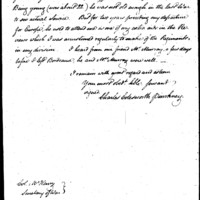 Being young (now about 22) he was not old enough in the last War
to see actual service. But for two years preceding my departure
for Europe, he used to attend me as one of my aids in the Re-
views which I was accustomed regularly to make of the Regiments
in my division. I heard from our friend Mr. Murray a few days
before I left Bordeaux, he and Mrs. Murray were well.
I remain with great regard and esteem
Your most Obedt. hble. Servant
Charles Cotesworth Pinckney.
Col. McHenry
Secretary of War